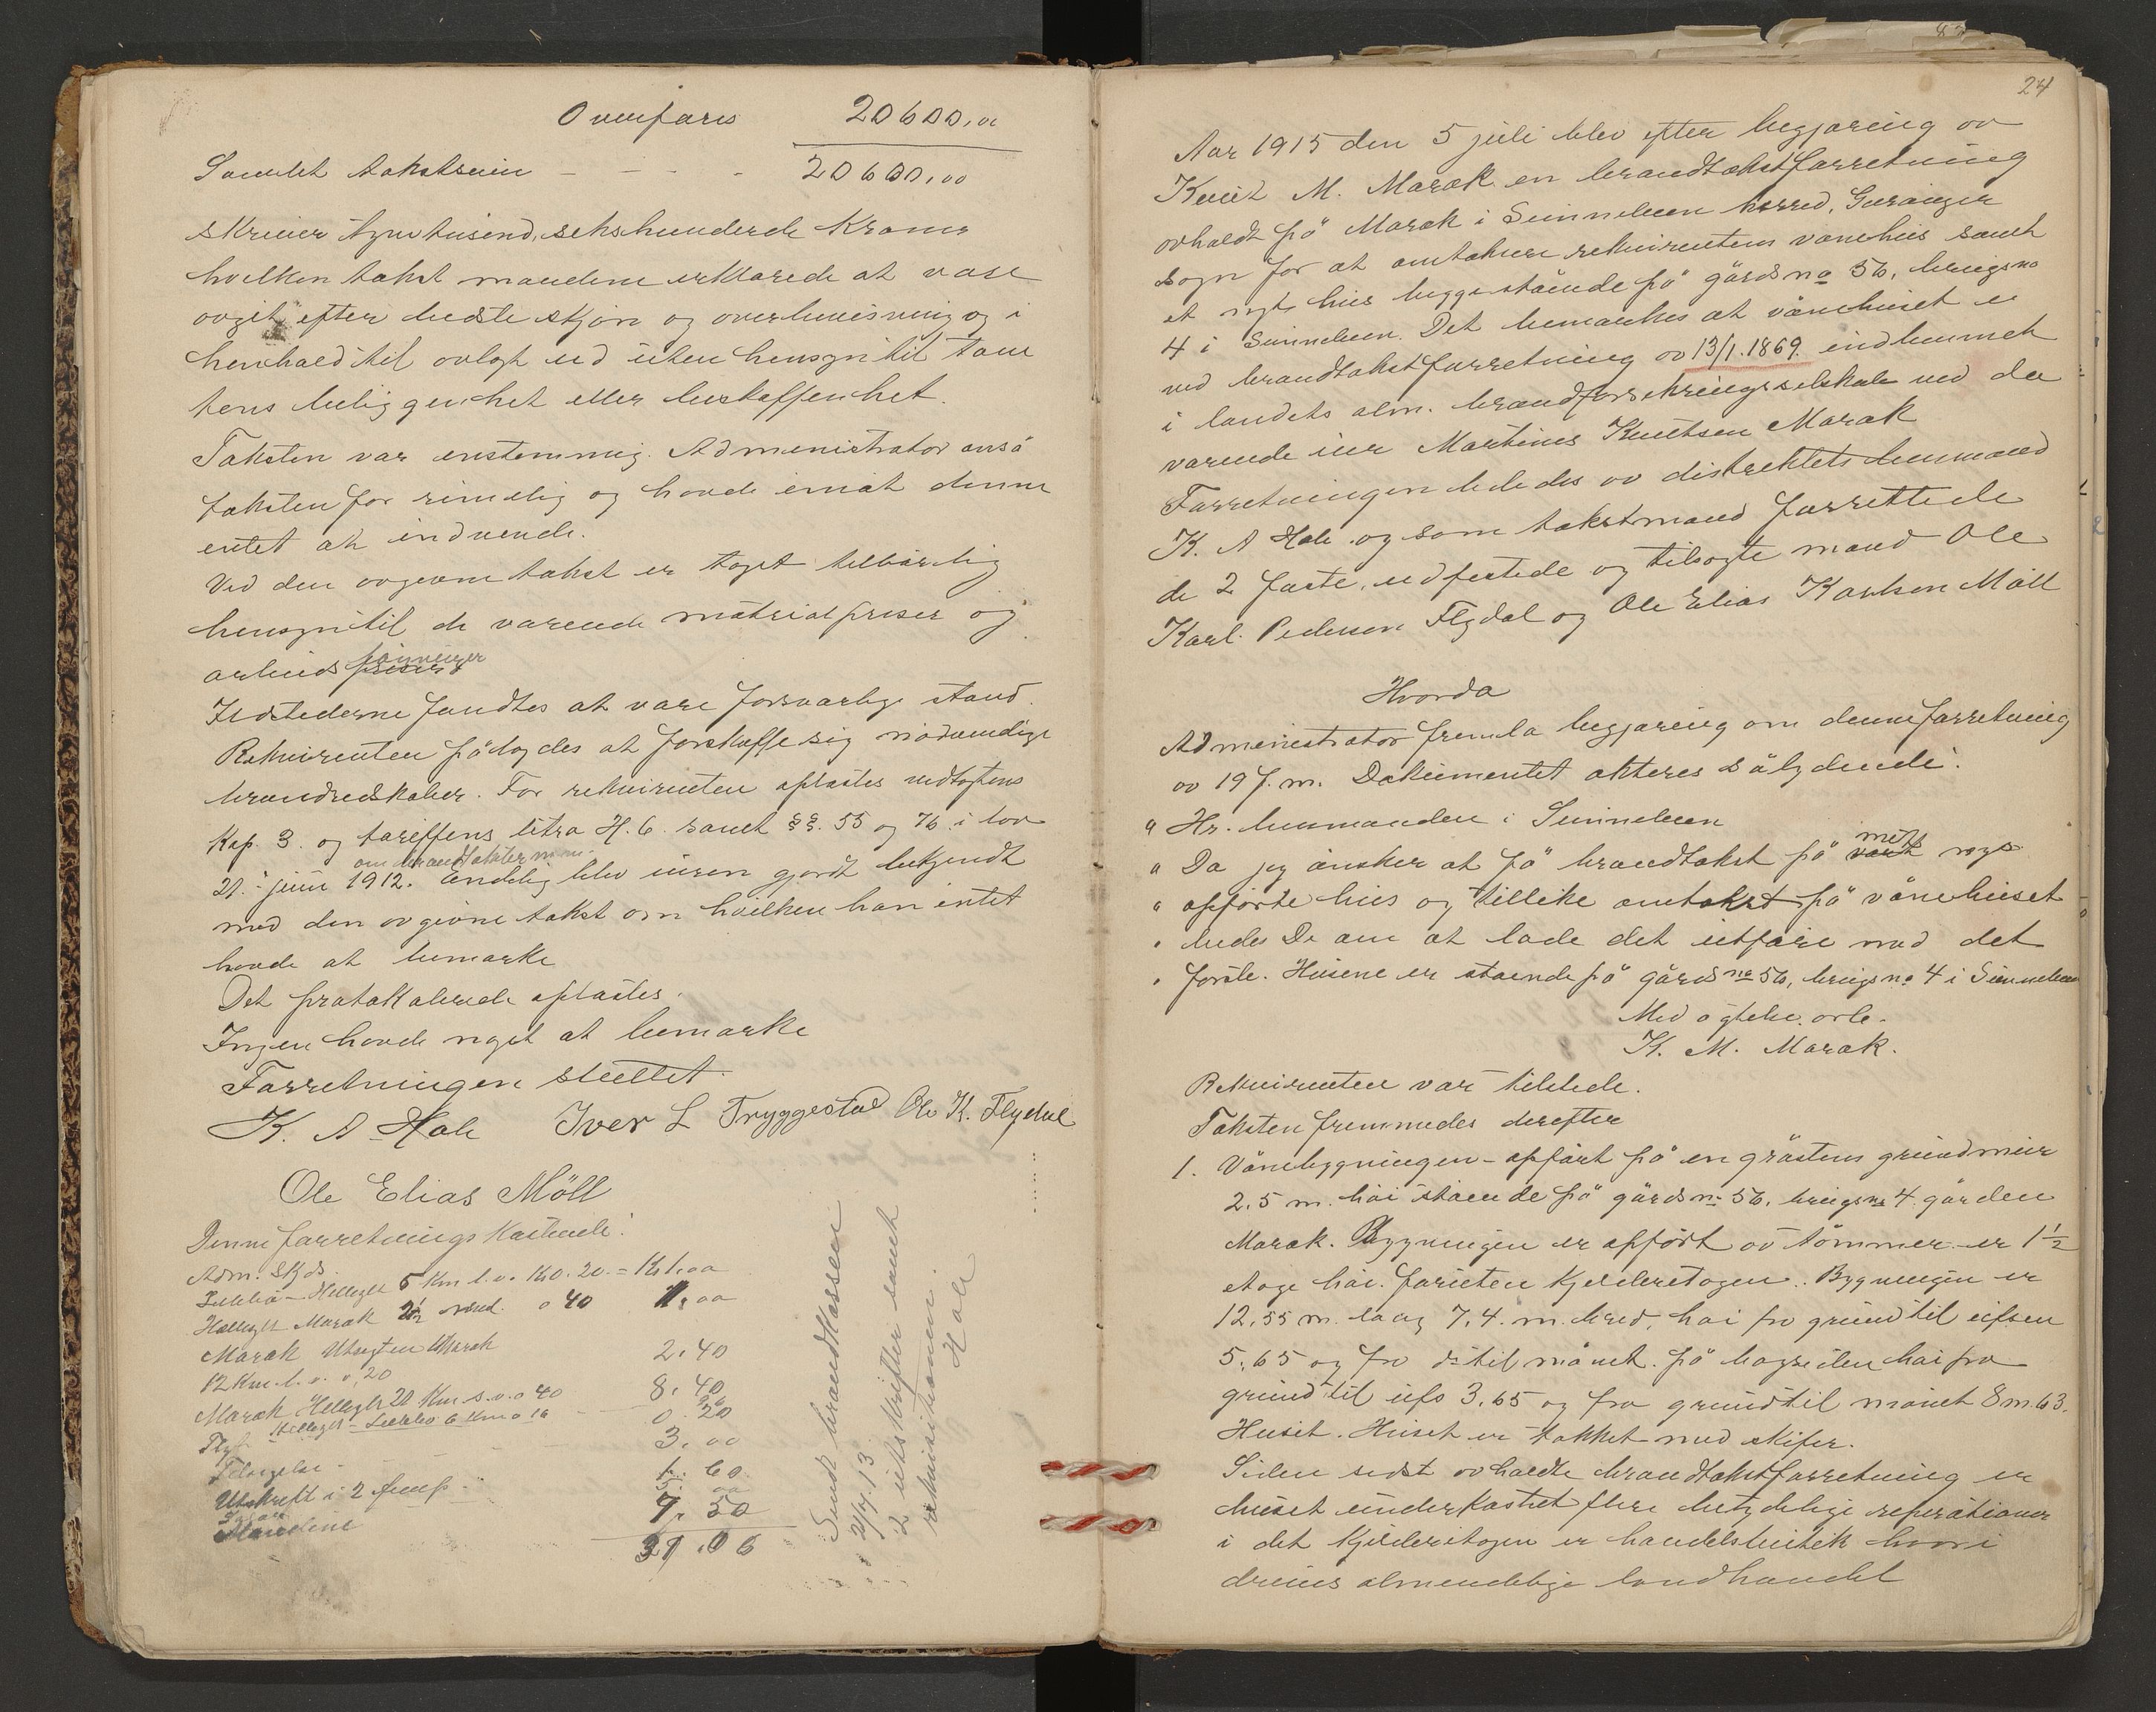 Overføres 20600,00
Samlet takstsum - - - - 20600,00
skriver tyvetusend, sekshunderede Kroner
hvilken takst mændene erklærede at være
avgit efter bedste skjøn og overbevisning og i
henhold til avlagt ed uten hensyn til tom
tens beliggenhet eller beskaffenhet.
Taksten var enstemmig. Administrator anså
taksten for rimelig og havde imot denne
intet at indvende.
Ved den avgivne takst er taget tilbørlig
hensyn til de værende matrialpriser og
arbeids
Ildstederne fandtes at være forsvarlig stand.
Rekvirenten pålagdes at forskaffe sig nødvendige
brandredskaber. For rekvirenten oplæstes vedtægtens
Kap. 3. og tariffens litra H. 6. samt §§. 55 og 76 i lov
om brandtakster m.m.
21. juni 1912. Endelig blev eieren gjordt bekjendt
med den avgivne takst om hvilken han intet
havde at bemærke
Det protokolerede oplæstes.
Ingen havde noget at bemærke
Forretningen sluttet.
K. A Hole Iver L Tryggestad Ole K. Flydal
Ole Elias Möll
Denne forretnings Kostende:
Adm. Skyds
Hellesylt 5 Km l.v. Kr 0.20 = Kr 1.00
Hellesylt Marak 2½ mil. o 40 1,00
Marak Utsigten Marak 2.40
12 Km. l. v. 0,20
Marak Hellesylt 20 Km s.v. o 40 8.40
0.20
3.00
Tilsigelse - 1.60
Utskrift i 2 7.50
Mændene
31.06
Sendt brandkassen
2/7.13.
2 utskrifter samt
rekvisitionen.
Hole
24
Aar 1915 den 5 juli blev efter begjæring av
Knut M. Marak en brandtakstforretning
avholdt på Marak i Sunnelven herred, Geiranger
sogn for at omtaksere rekvirentens vånehus samt
et nyt hus begge stående på gårdsno 56, bruigsno
4 i Sunnelven. Det bemærkes at vånehuset er
ved brandtakstforretning av 13/1.1869. indlemmet
i landets alm. brandforsekringsselskab ved da
værende eier Martinus Knutsen Marak
Forretningen lededes av distriktets lensmand
K. A Hole og som takstmænd forrettede
de 2 faste, edfæstede og tilsagte mænd Ole
Karl Pedersen Flydal og Ole Elias Karlsen Möll
Hvorda
Administrator fremla begjæring om denne forretning
av 19 f. m. Dokumentet akteres sålydende:
" Hr. lensmanden i Sunnelven
" Da jeg ønsker at få brandtakst på mitt nye
" opførte hus og tillike omtakst på vånehuset
" bedes De om at lade det utføre med det
" første. Husene er stående på gårdsno 56, bruigsno 4 i Sunnelven
Med agtelse. ærb.
K. M. Marak.
Rekvirenten var tilstede.
Taksten fremmedes derefter
1. Vånebygningen - opført på en gråstens grundmur
2.5 m. høi stående på gårdsno 56, bruigsno 4 gården
Marak. Bygningen er opført av tømmer er 1½
etage høi. foruten kjelderetagen. Bygningen er
12.55 m. lang 7.4. m. bred, høi fra grund til ufsen
5.65 og fra do til mønet. på bagsiden høi fra
grund til ufs 3.65 og fra grund til mønet 8 m. 63.
Huset. Huset er tækket med skifer.
Siden sidst avholdte brandtakstforretning er
huset underkastet flere betydelige reperationer
i det kjelderetagen er handelsbutik hvori
drives almendelige landhandel